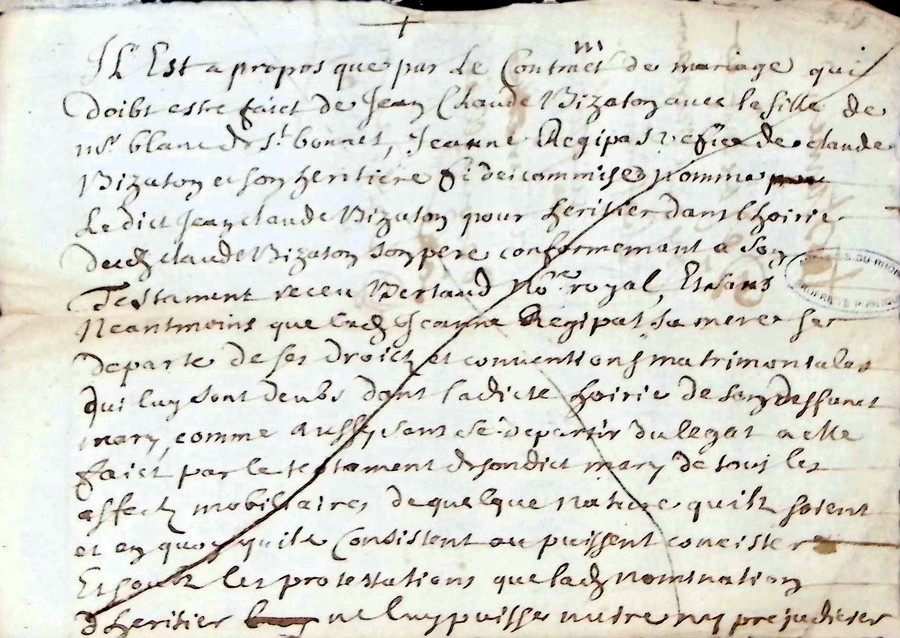 Il Est a propos que par le Contract de mariage qui
doibt estre faict de Jean Claude Bizaton avec la fille de
mr blanc de st bonnet, Jeanne Regipas vefve de claude
Bizaton et son heritiere fideicommise nomme
Le dict Jean claude Bizaton pour heritier dans lhoirie
dud claude Bizaton son pere conformemant a son
Testament receu Bertaud Nore royal, Et sans
Neantmoins que lad Jeanne Regipas sa mere se
departe de ses droictz et conventions matrimoniales
qui luy sont deubs dans ladicte hoirie de son deffunct
mary, comme aussy sans se departir du legat a elle
faict par le testament de sondict mary de tous les
effectz mobiliaires de quelque nature quilz soient
et en quoy quilz Consistent ou puissent concister
Et soubz les protestations que lad nomination
dheritier ne luy puisse nuire ny prejudicier